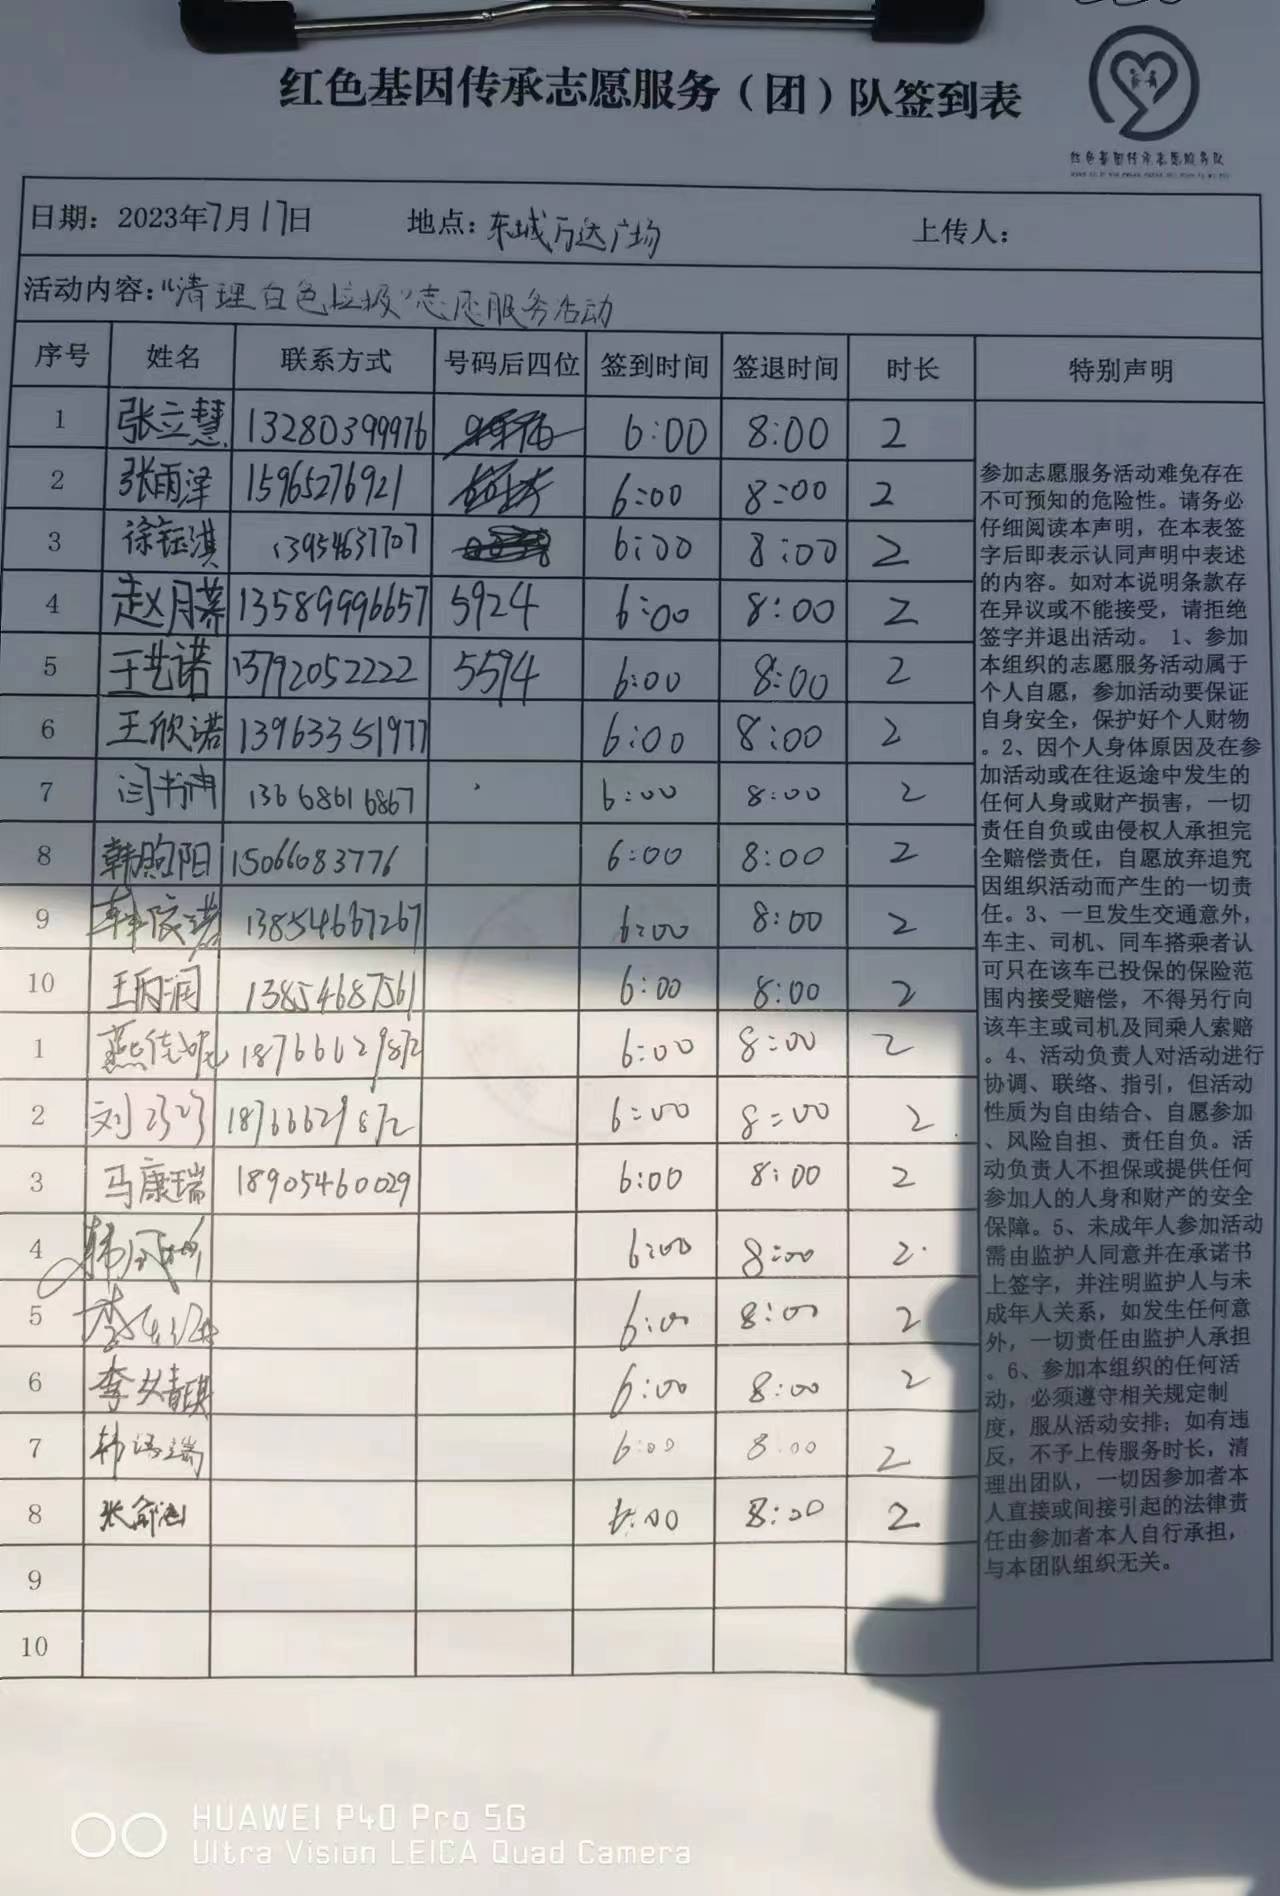 红色基因传承志愿服务（团）队签到表
红色基因传承志愿服务队
日期：2023年7月17日 地点：东城万达广场 上传人：
活动内容：“清理白色垃圾”志愿服务活动
序号 姓名 联系方式 号码后四位 签到时间 签退时间 时长 特别声明
1 张立慧 13280399976 6:00 8:00 2
2 张雨泽 15965276921 6:00 8:00 2
3 徐钰淇 13954637707 6:00 8:00 2
4 赵月 13589996657 5924 6:00 8:00 2
5 王艺诺 13792052222 5594 6:00 8:00 2
6 王欣诺 13963351977 6:00 8:00 2
7 闫书 13668616867 6:00 8:00 2
8 韩煦阳 15066083776 6:00 8:00 2
9 13854667267 6:00 8:00 2
10 王雨润 13854687561 6:00 8:00 2
1 燕 18766629812 6:00 8:00 2
2 刘 18766629812 6:00 8:00 2
3 马康瑞 18905460029 6:00 8:00 2
4 韩 6:00 8:00 2
5 李 6:00 8:00 2
6 李 6:00 8:00 2
7 韩 瑞 6:00 8:00 2
8 张俞 6:00 8:00 2
9
10
参加志愿服务活动难免存在
不可预知的危险性。请务必
仔细阅读本声明，在本表签
字后即表示认同声明中表述
的内容。如对本说明条款存
在异议或不能接受，请拒绝
签字并退出活动。1、参加
本组织的志愿服务活动属于
个人自愿，参加活动要保证
自身安全，保护好个人财物
。2、因个人身体原因及在参
加活动或在往返途中发生的
任何人身或财产损害，一切
责任自负或由侵权人承担完
全赔偿责任，自愿放弃追究
因组织活动而产生的一切责
任。3、一旦发生交通意外，
车主、司机、同车搭乘者认
可只在该车已投保的保险范
围内接受赔偿，不得另行向
该车主或司机及同乘人索赔
。4、活动负责人对活动进行
协调、联络、指引，但活动
性质为自由结合、自愿参加
、风险自担、责任自负。活
动负责人不担保或提供任何
参加人的人身和财产的安全
保障。5、未成年人参加活动
需由监护人同意并在承诺书
上签字，并注明监护人与未
成年人关系，如发生任何意
外，一切责任由监护人承担
。6、参加本组织的任何活
动，必须遵守相关规定制
度，服从活动安排；如有违
反，不予上传服务时长，清
理出团队，一切因参加者本
人直接或间接引起的法律责
任由参加者本人自行承担，
与本团队组织无关。
HUAWEI P40 Pro 5G
Ultra Vision LEICA Quad Camera